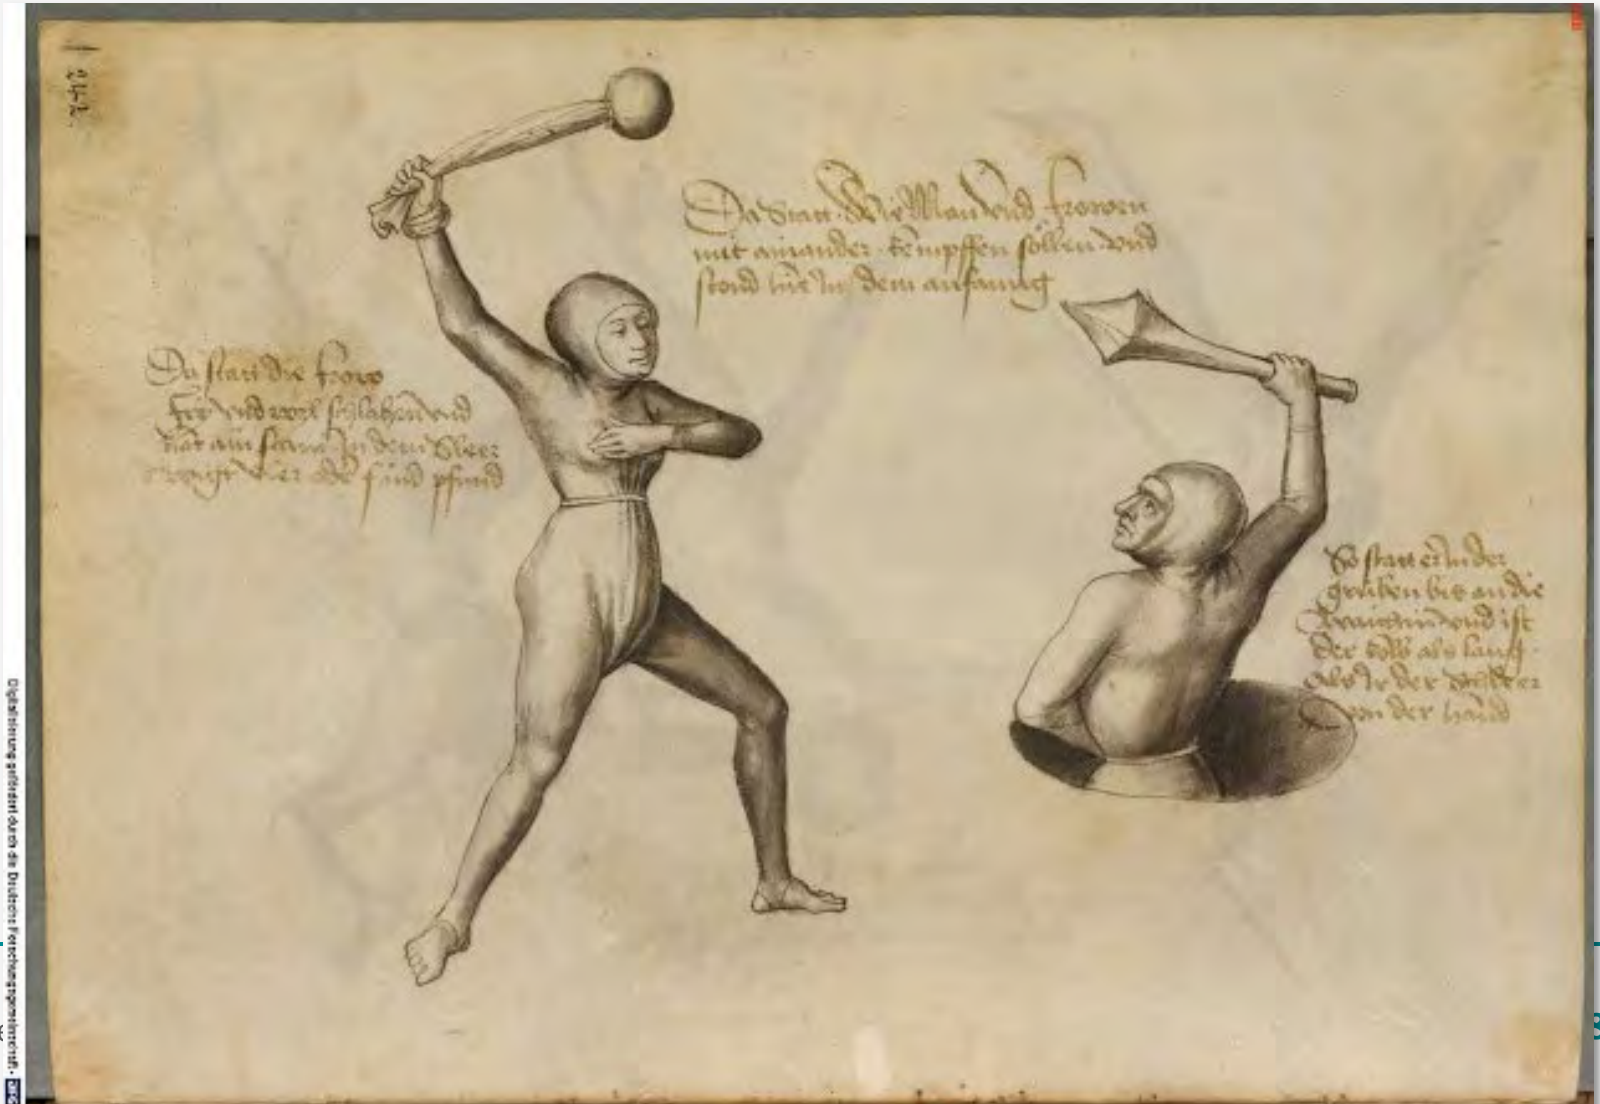 242
Da Statt Wie Man vnd frowen
mit ainander kempffen söllen vnd
stond hie In dem anfang
Da statt die frow
fry vnd wil schlahen vnd
hat ain stain In dem Sleer
wigt vier oder fünd pfund
So statt er in der
gruben bis an die
waichin vnd ist
der kolb als lang
als Ir der schleer
von der hand
Digitalisierung gefördert durch die Deutsche Forschungsgemeinschaft -
8